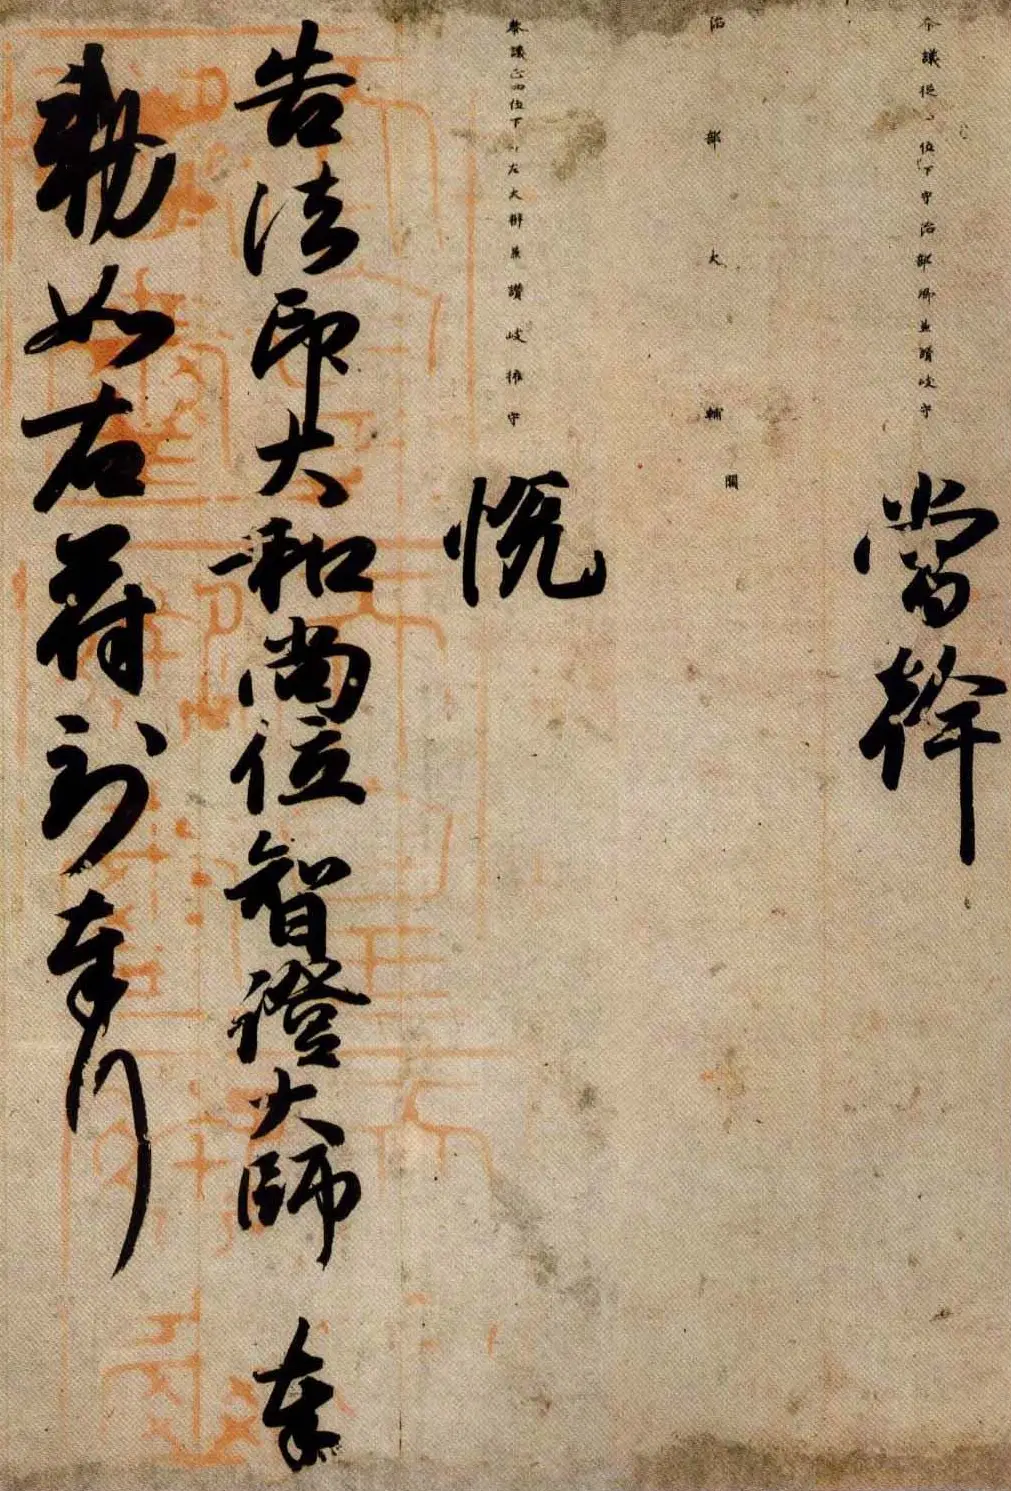 参議從四位下守治部卿兼讃岐守
當幹
治部大輔闕
參議正四位下行左大辨兼讃岐權守
悦
告法印大和尚位智證大師 奉
勅如右符到奉行